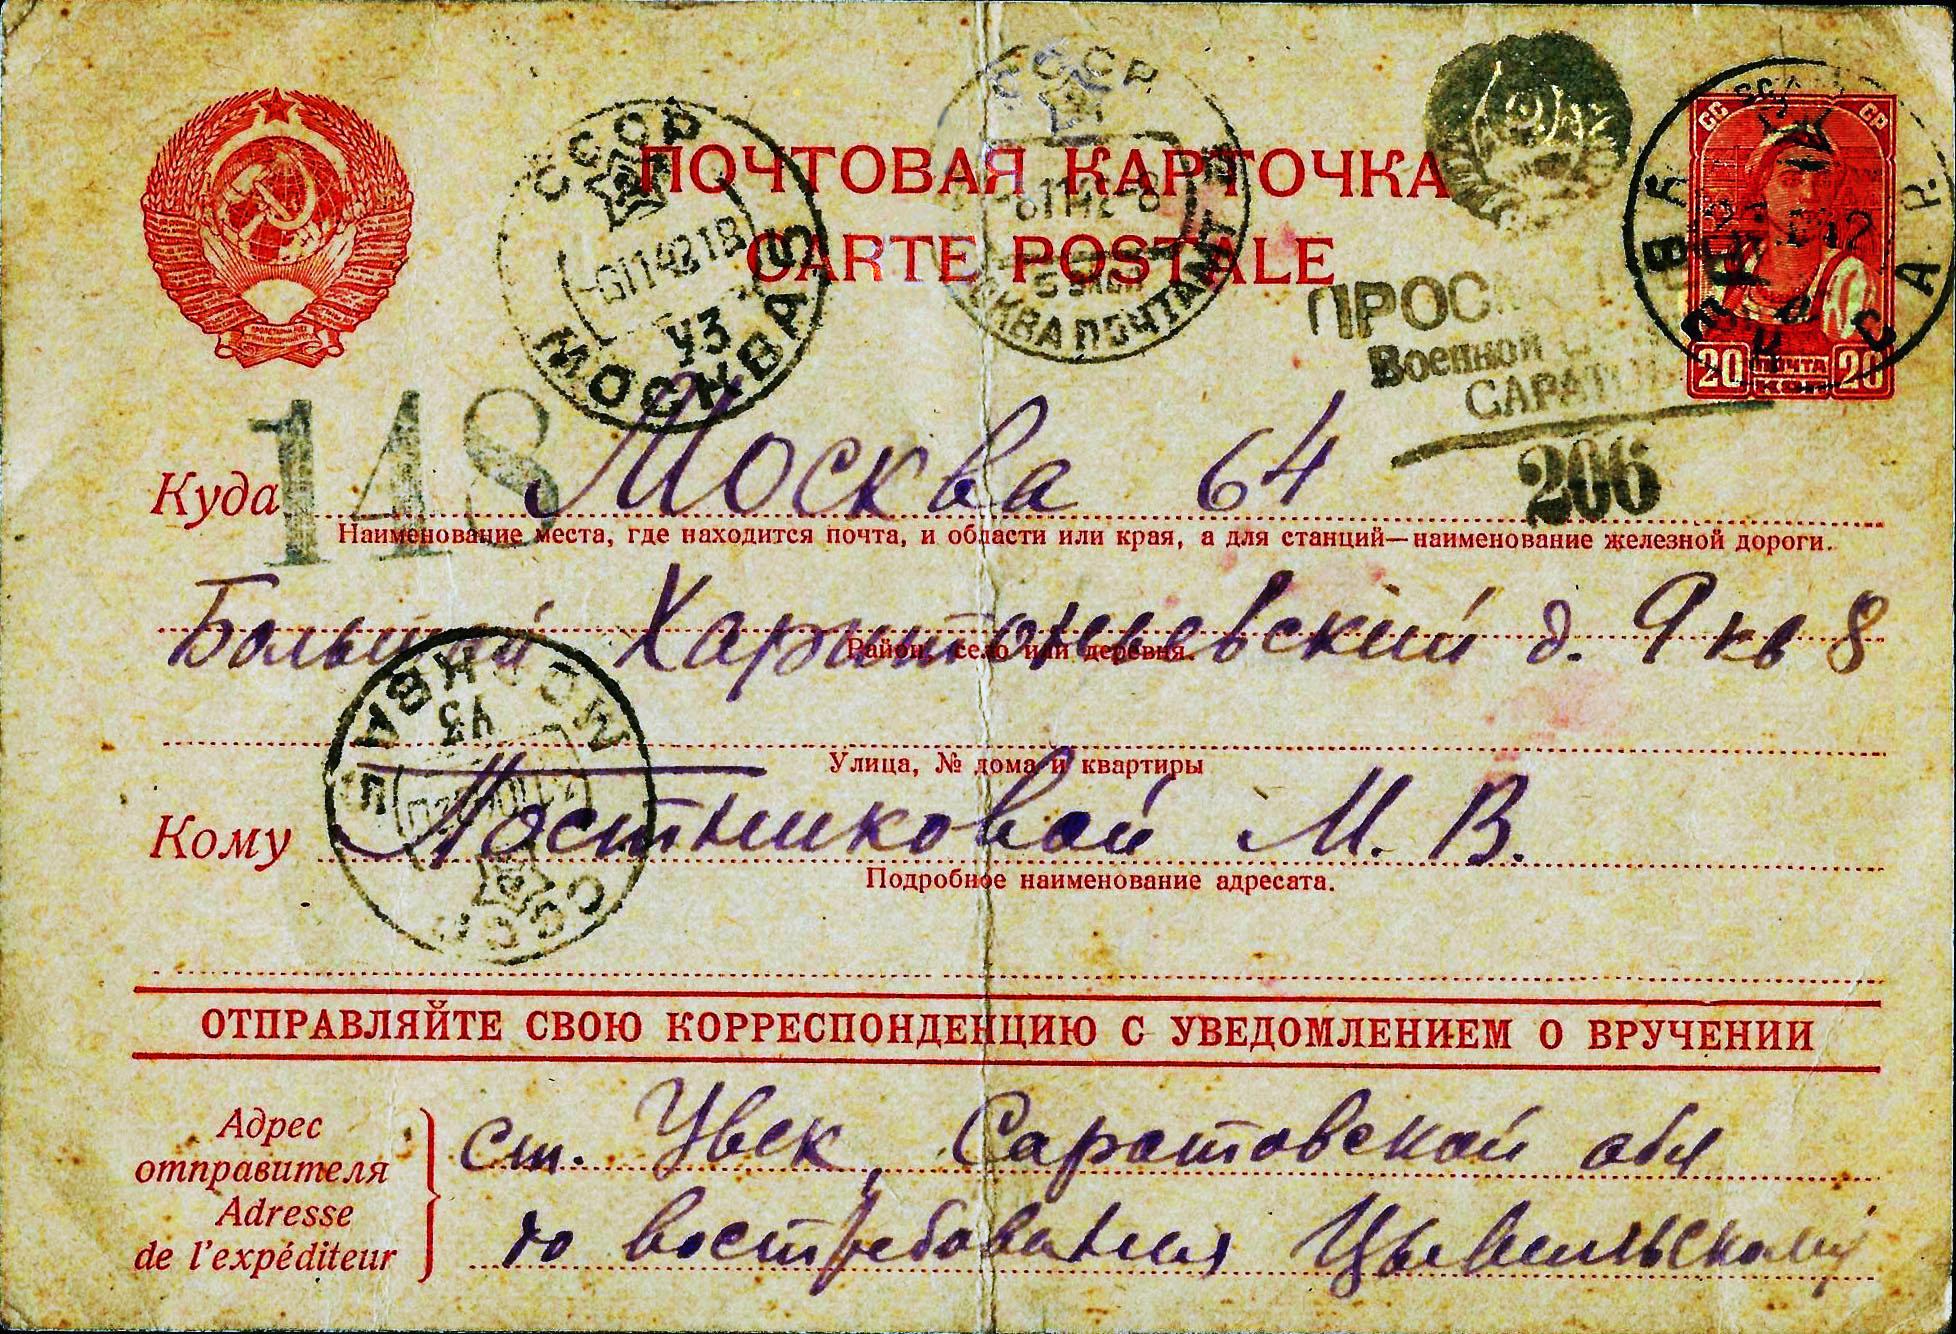 СССР
СССР
ПОЧТОВАЯ КАРТОЧКА
CARTE POSTALE
МОСКВА
УЗ
МОСКВА ПОЧТАМТ
УВЕК
САР.
20 ПОЧТА 20
КОП
ПРОС
Военной
САРАТОВ
206
148
Куда Москва 64
Наименование места, где находится почта, и области или края, а для станций—наименование железной дороги.
Большой Харитоньевский д. 9 кв 8
Район, село или деревня.
Улица, № дома и квартиры
МОСКВА
УЗ
СССР
Кому Постниковой М. В.
Подробное наименование адресата.
ОТПРАВЛЯЙТЕ СВОЮ КОРРЕСПОНДЕНЦИЮ С УВЕДОМЛЕНИЕМ О ВРУЧЕНИИ
Адрес
отправителя
Adresse
de l'expéditeur
ст. Увек, Саратовской обл
до востребования Цывильский